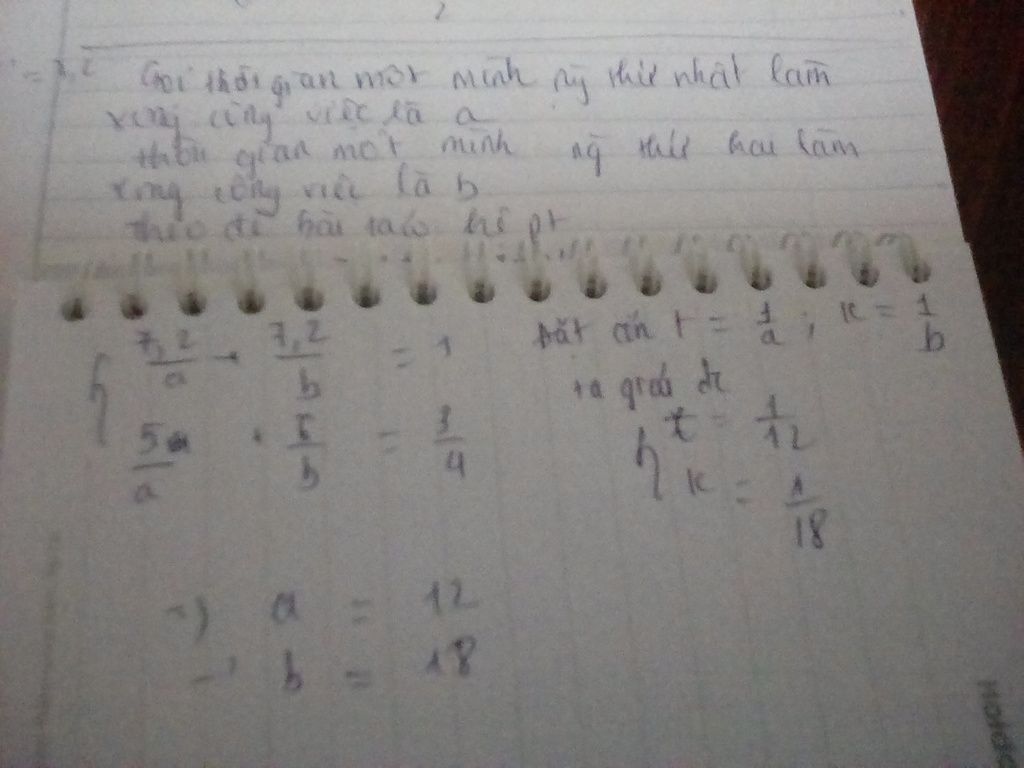 = 7,2 Gọi thời gian một mình ng thứ nhất làm
xong công việc là a
thời gian một mình ng thứ hai làm
xong công việc là b
theo đề bài ta có hệ pt
7,2/a + 7,2/b = 1 đặt ẩn t = 1/a ; k = 1/b
ta giải đc
5/a + 6/b = 3/4 t = 1/12
k = 1/18
=) a = 12
b = 18